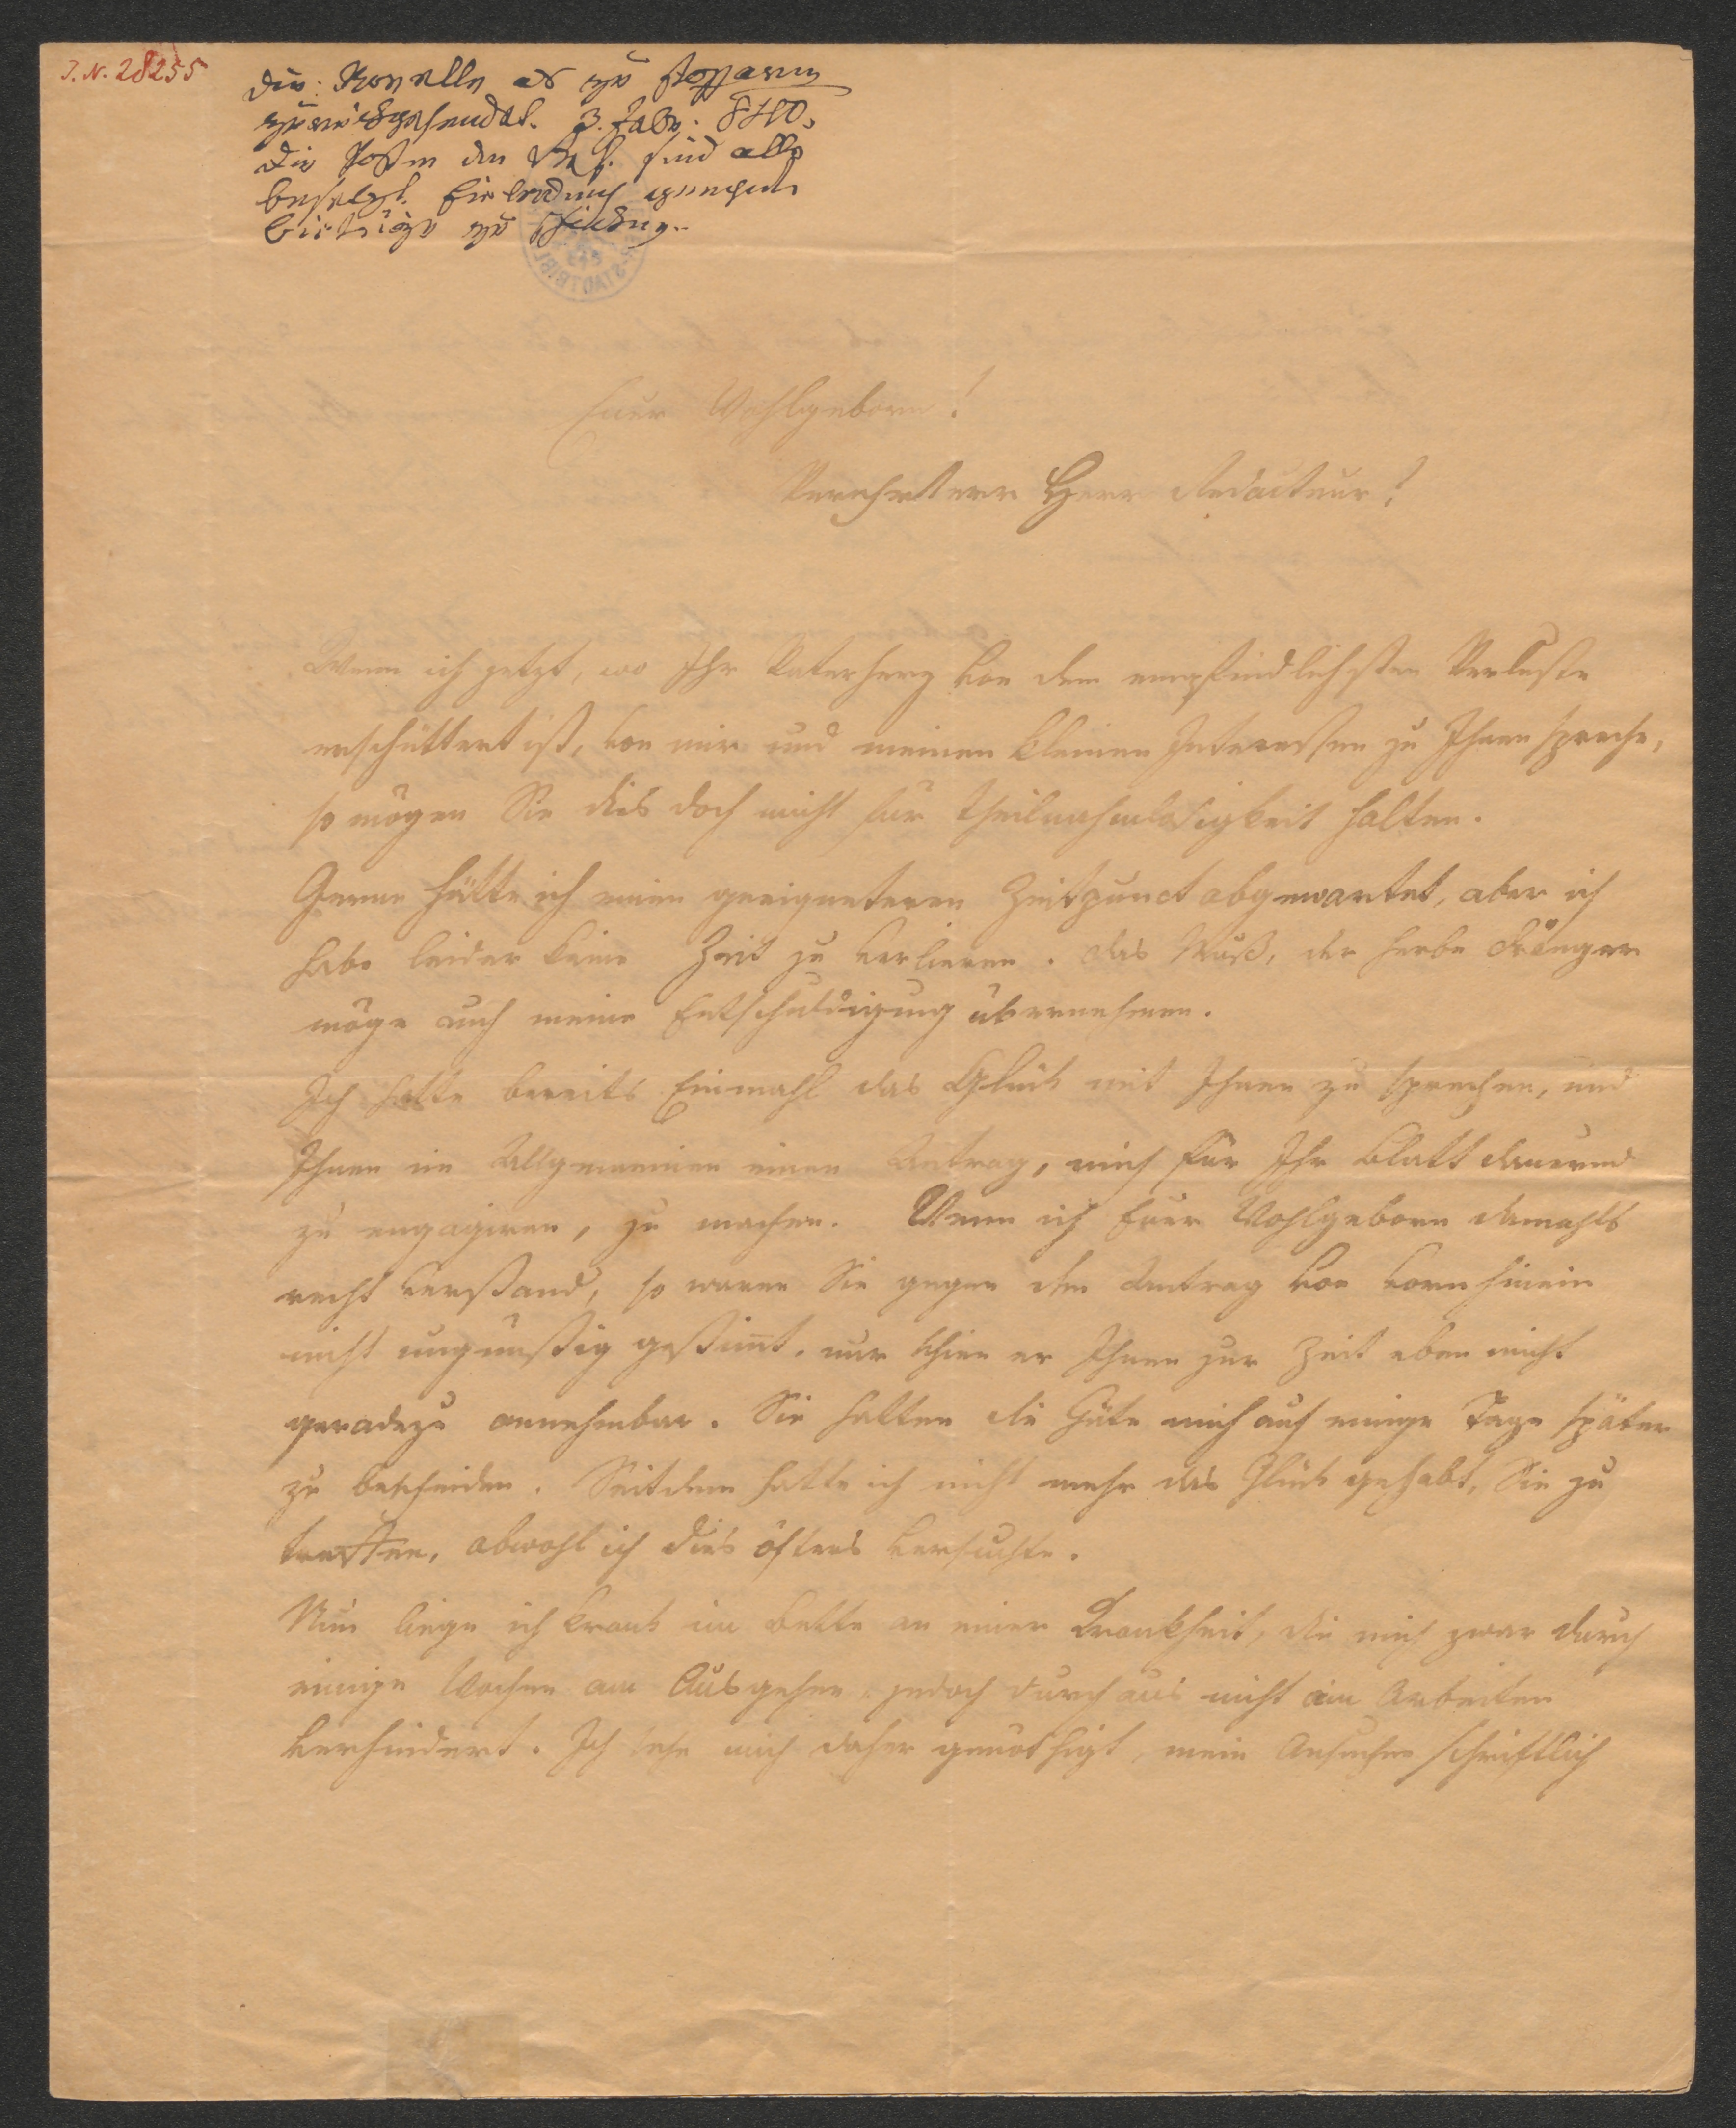 J. N. 28255
Die Novelle als zu
zurückgesendet. 3. Febr. 840.
Die Posten der sind alle
besetzt. Einladung
Beiträge zu schicken.
Euer Wohlgeborn!
Verehrtester Herr Redacteur!
Wenn ich jetzt, wo Ihr Vaterherz von dem empfindlichsten Verluste
erschüttert ist, von mir und meinen kleinen Interessen zu Ihnen spreche,
so mögen Sie dies doch nicht für Theilnahmslosigkeit halten.
Gerne hätte ich einen geeigneteren Zeitpunct abgewartet, aber ich
habe leider keine Zeit zu verlieren. Das Muß, der herbe Dränger
möge auch meine Entschuldigung übernehmen.
Ich hatte bereits Einmahl das Glück mit Ihnen zu sprechen, und
Ihnen im Allgemeinen einen Antrag, mich für Ihr Blatt dauernd
zu engagiren, zu machen. Wenn ich Euer Wohlgeborn damahls
recht verstand, so waren Sie gegen den Antrag von vorn hinein
nicht ungünstig gestimt, nur schien er Ihnen zur Zeit eben nicht
geradezu annehmbar. Sie hatten die Güte mich auf einige Tage später
zu bescheiden. Seitdem hatte ich nicht mehr das Glück gehabt, Sie zu
treffen, obwohl ich dies öfters versuchte.
Nun liege ich krank im Bette an einer Krankheit, die mich zwar durch
einige Wochen am Ausgehen, jedoch durchaus nicht am Arbeiten
verhindert. Ich sehe mich daher genöthigt, mein Ansuchen schriftlich